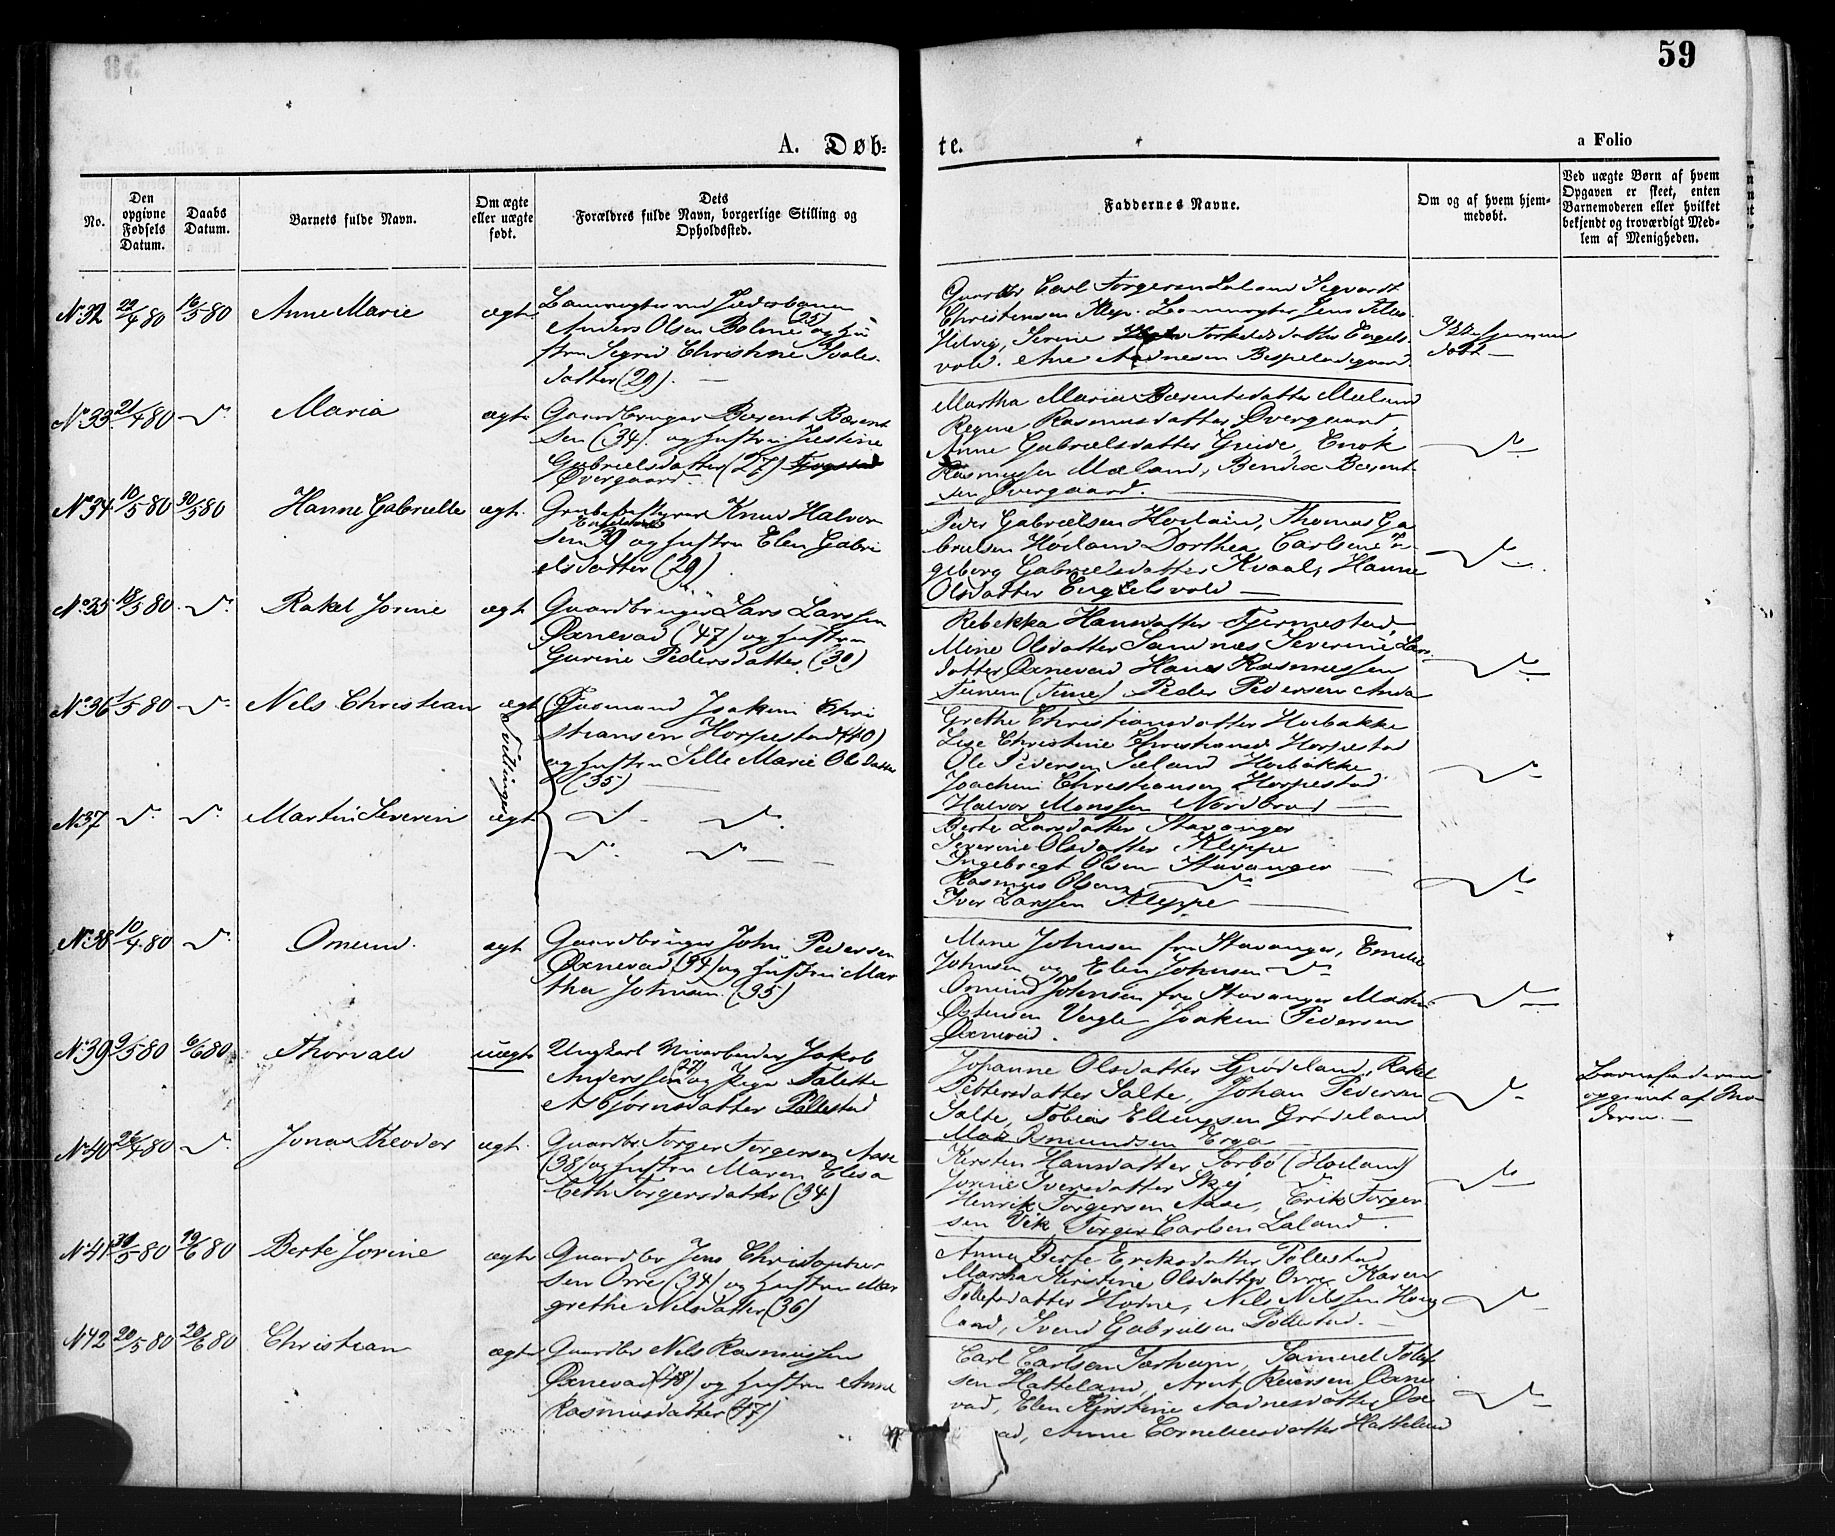 59
A. Døb-
te.
a Folio
No.
Den opgivne Fødsels Datum.
Daabs Datum.
Barnets fulde Navn.
Om ægte eller uægte født.
Dets Forældres fulde Navn, borgerlige Stilling og Opholdssted.
Faddernes Navne.
Om og af hvem hjemmedøbt.
Ved uægte Børn af hvem Opgaven er skeet, enten Barnemoderen eller hvilket bekjendt og troværdigt Medlem af Menigheden.
No 32 29/4 80 16/5 80 Anne Marie ægte
Banevogter ved Jæderbanen
Anders Olsen (25) og Hu
stru Sigrid Christine
datter (29). —
Carl Torgersen Laland Sigvardt
Christensen Klep. Banevogter Jens
Serine Torkelsdatter Engels
vold. Ane Aadnesen
Ikke hjemme
døbt —
No 33 21/4 80 Maria ægte
Gaardbruger Bærent Bærent
sen (34) og Hustru Justine
Gabrielsdatter (27)
Øvergaard.
Martha Maria Bærentsdatter Mæland
Regine Rasmusdatter Øvergaard,
Anne Gabrielsdatter Grude, Enok
Rasmussen Mæland, Bendix Bærent
sen Øvergaard. —
No 34 10/5 80 30/5 80 Hanne Gabrielle ægt.
Knud Halvor
sen 39 og Hustru Elen Gabri
elsdatter (29).
Peder Gabrielsen Høiland, Thomas Ga
brielsen Høiland Dorthea Carlsen
geborg Gabrielsdatter Kvaal, Hanne
Olsdatter Engelsvold —
No 35 18/5 80 Rakel Jorine ægt
Gaardbruger Lars Larssen
Øxnevad (47) og Hustru
Gurine Pedersdatter (30)
Rebekka Hansdatter Fjermestad,
Mine Olsdatter Sandnes Severine Lars
datter Øxnevad Hans Rasmussen
(Time) Peder Pedersen Anda
No 36 1/5 80 Nels Christian ægt
Tvillinger
Huusmand Joakim Chri
stiansen Horpestad (40)
og Hustru Sille Marie Olsdatter
(35) —
Grethe Christiansdatter Hoibakke
Lise Christine Christiansd Horpestad
Ole Pedersen Hoibakke
Joachim Christiansen Horpestad
Halvor Monssen Nordbraad —
No 37 Martin Severin ægt
Berte Larsdatter Stavanger
Severine Olsdatter Kleppe
Ingebregt Olsen Stavanger —
Rasmus Olsen
Iver Larssen Kleppe —
No 38 10/4 80 Omund. ægt
Gaardbruger John Pedersen
Øxnevad (34) og Hustru Mar
tha Johnsen. (35)
Mine Johnsen fra Stavanger, Emelie
Johnsen og Elen Johnsen
Omund Johnsen fra Stavanger
Østensen Vergle Joakim Pedersen
Øxnevad.
No 39 9/5 80 6/6 80 Thorvald uægte
Ungkarl Minearbeider Jakob
Anderssen og Pige Talette
Asbjørnsdatter Pollestad
Johanne Olsdatter Grødeland, Rakel
Pettersdatter Salte, Johan Pedersen
Salte, Tobias Ellingsen Grødeland
Osmundsen Erga —
Barnefaderen
opgivet af Mo
deren. —
No 40 26/4 80 Jonas Theodor ægt.
Gaardbr. Torger Torgersen Aase
(38) og Hustru Maren Elisa
beth Torgersdatter (34)
Kirsten Hansdatter Sorbø (Hoiland)
Jorine Iversdatter Skej
Henrik Torgersen Aase, Erik Torger
sen Vik Torger Carlsen Laland.
No 41 30/5 80 19/6 80 Berte Jorine ægte
Gaardbr Jens Christopher
sen Orre (34) og Hustru Mar
grethe Nilsdatter (36)
Anna Berte Eriksdatter Pollestad
Martha Kirstine Olsdatter Orre Karen
Tollefsdatter Hodne, Nils Nilssen Houg
land, Svend Gabrielsen Pollestad. —
No 42 20/5 80 20/6 80 Christian ægte
Gaardbr Nils Rasmussen
Øxnevad (48) og Hustru Anne
Rasmusdatter (47)
Carl Carlsen Samuel Tollef
sen Hatteland, Arnt Reiersen Oxne
vad, Elen Kirstine Aadnesdatter Oxe
ad, Anne Corneliusdatter Hatteland